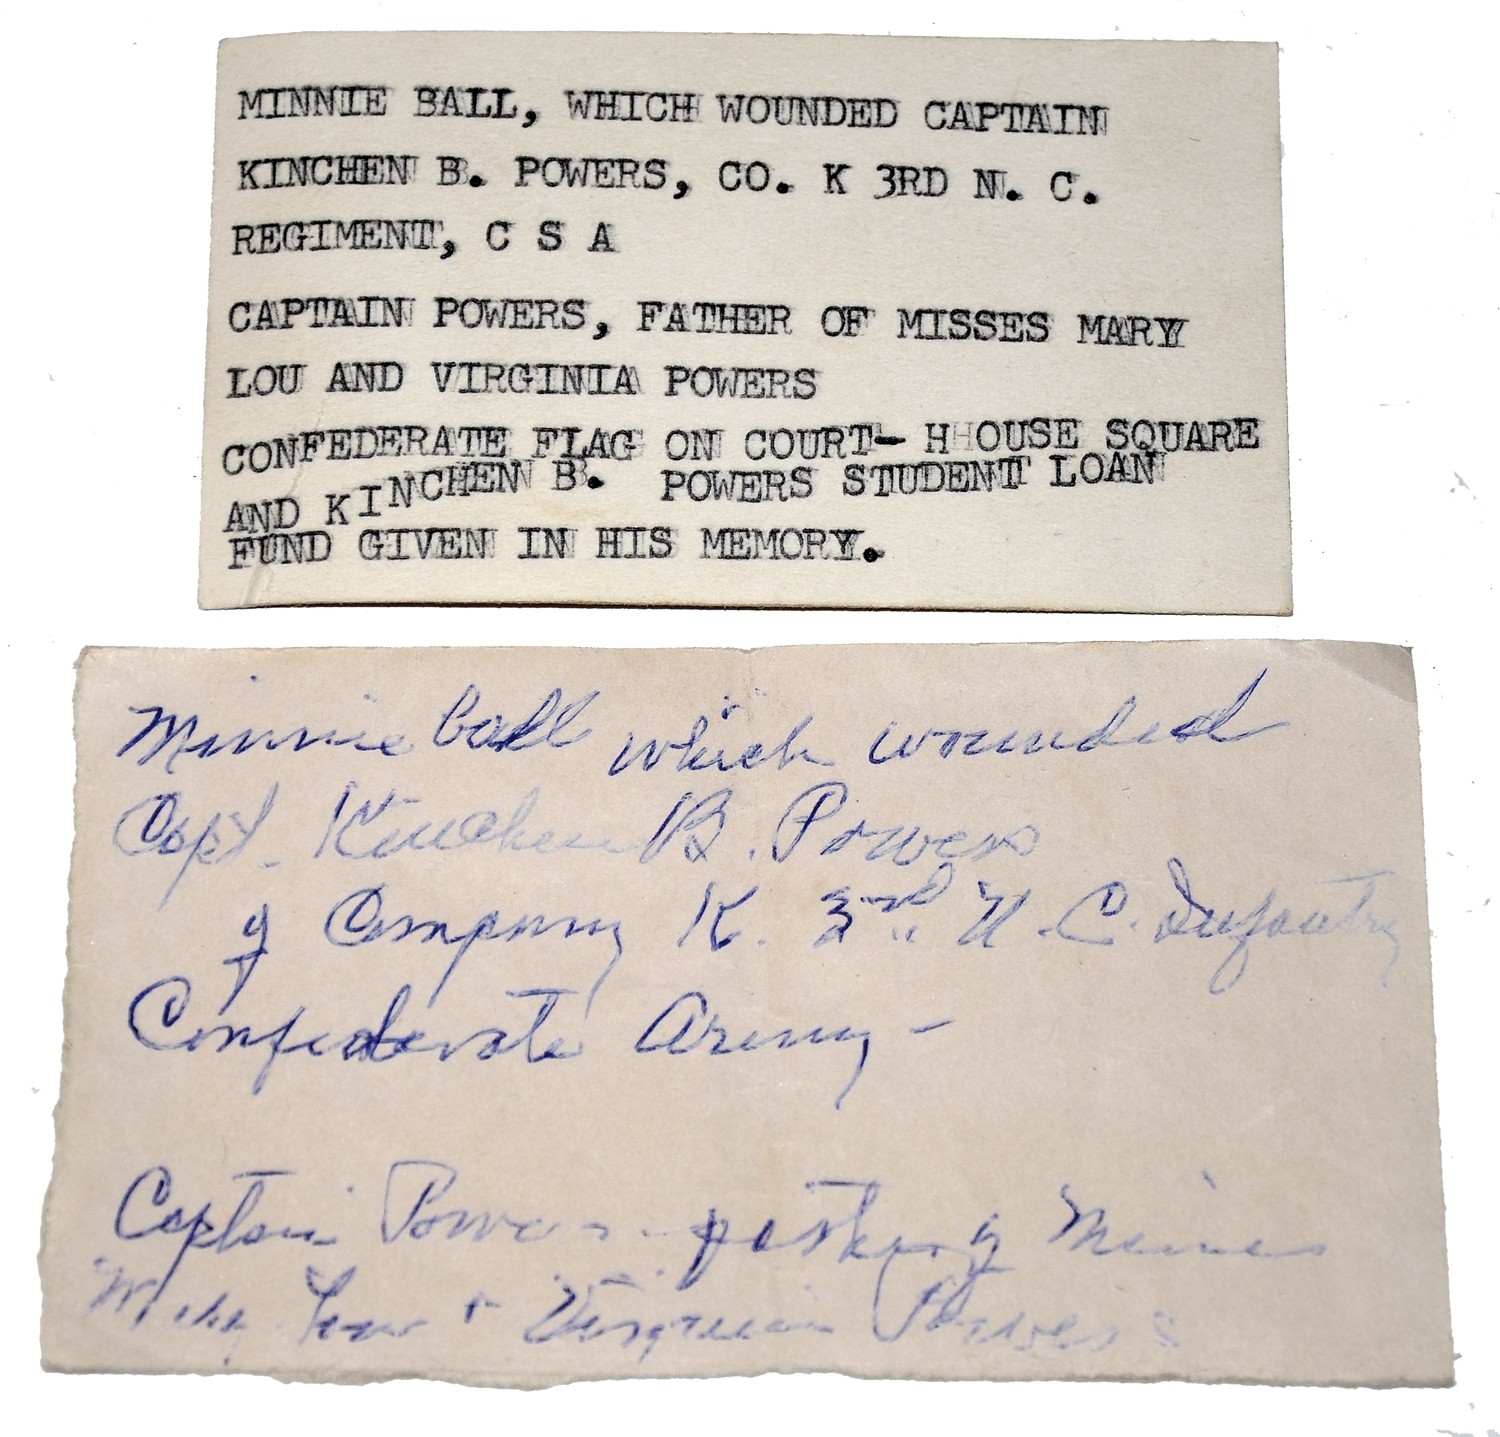 MINNIE BALL, WHICH WOUNDED CAPTAIN
KINCHEN B. POWERS, CO. K 3RD N. C.
REGIMENT, C S A
CAPTAIN POWERS, FATHER OF MISSES MARY
LOU AND VIRGINIA POWERS
CONFEDERATE FLAG ON COURT- HHOUSE SQUARE
AND KINCHEN B. POWERS STUDENT LOAN
FUND GIVEN IN HIS MEMORY.
Minnie ball which wounded
Capt. Kinchen B. Powers
of Company K. 3rd N. C. Infantry
Confederate Army -
Captain Powers - father of Misses
Mary Lou + Virginia Powers